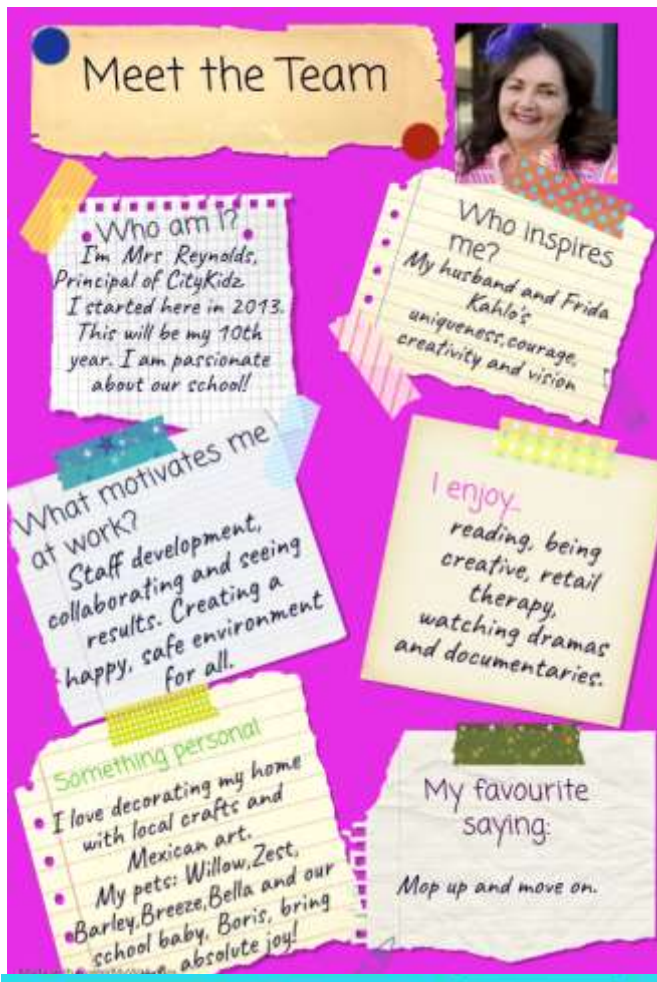 Meet the Team
Who am I?
I'm Mrs Reynolds,
Principal of CityKidz
I started here in 2013.
This will be my 10th
year. I am passionate
about our school!
Who inspires
me?
My husband and Frida
Kahlo's
uniqueness,courage,
creativity and vision
What motivates me
at work?
Staff development,
collaborating and seeing
results. Creating a
happy, safe environment
for all.
I enjoy..
reading, being
creative, retail
therapy,
watching dramas
and documentaries.
Something personal
I love decorating my home
with local crafts and
Mexican art.
My pets: Willow,Zest,
Barley,Breeze,Bella and our
school baby, Boris, bring
absolute joy!
My favourite
saying:
Mop up and move on.